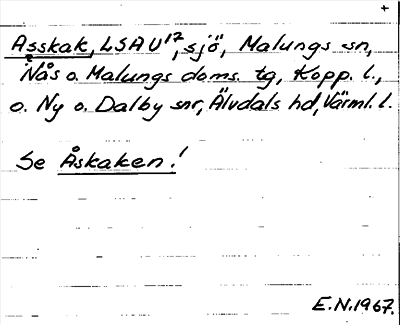 +
Asskak, LSAU17, sjö, Malungs sn,
Nås o. Malungs doms. tg, Kopp. l.,
o. Ny o. Dalby snr, Älvdals hd, Värml. l.
Se Åskaken!
E.N. 1967.